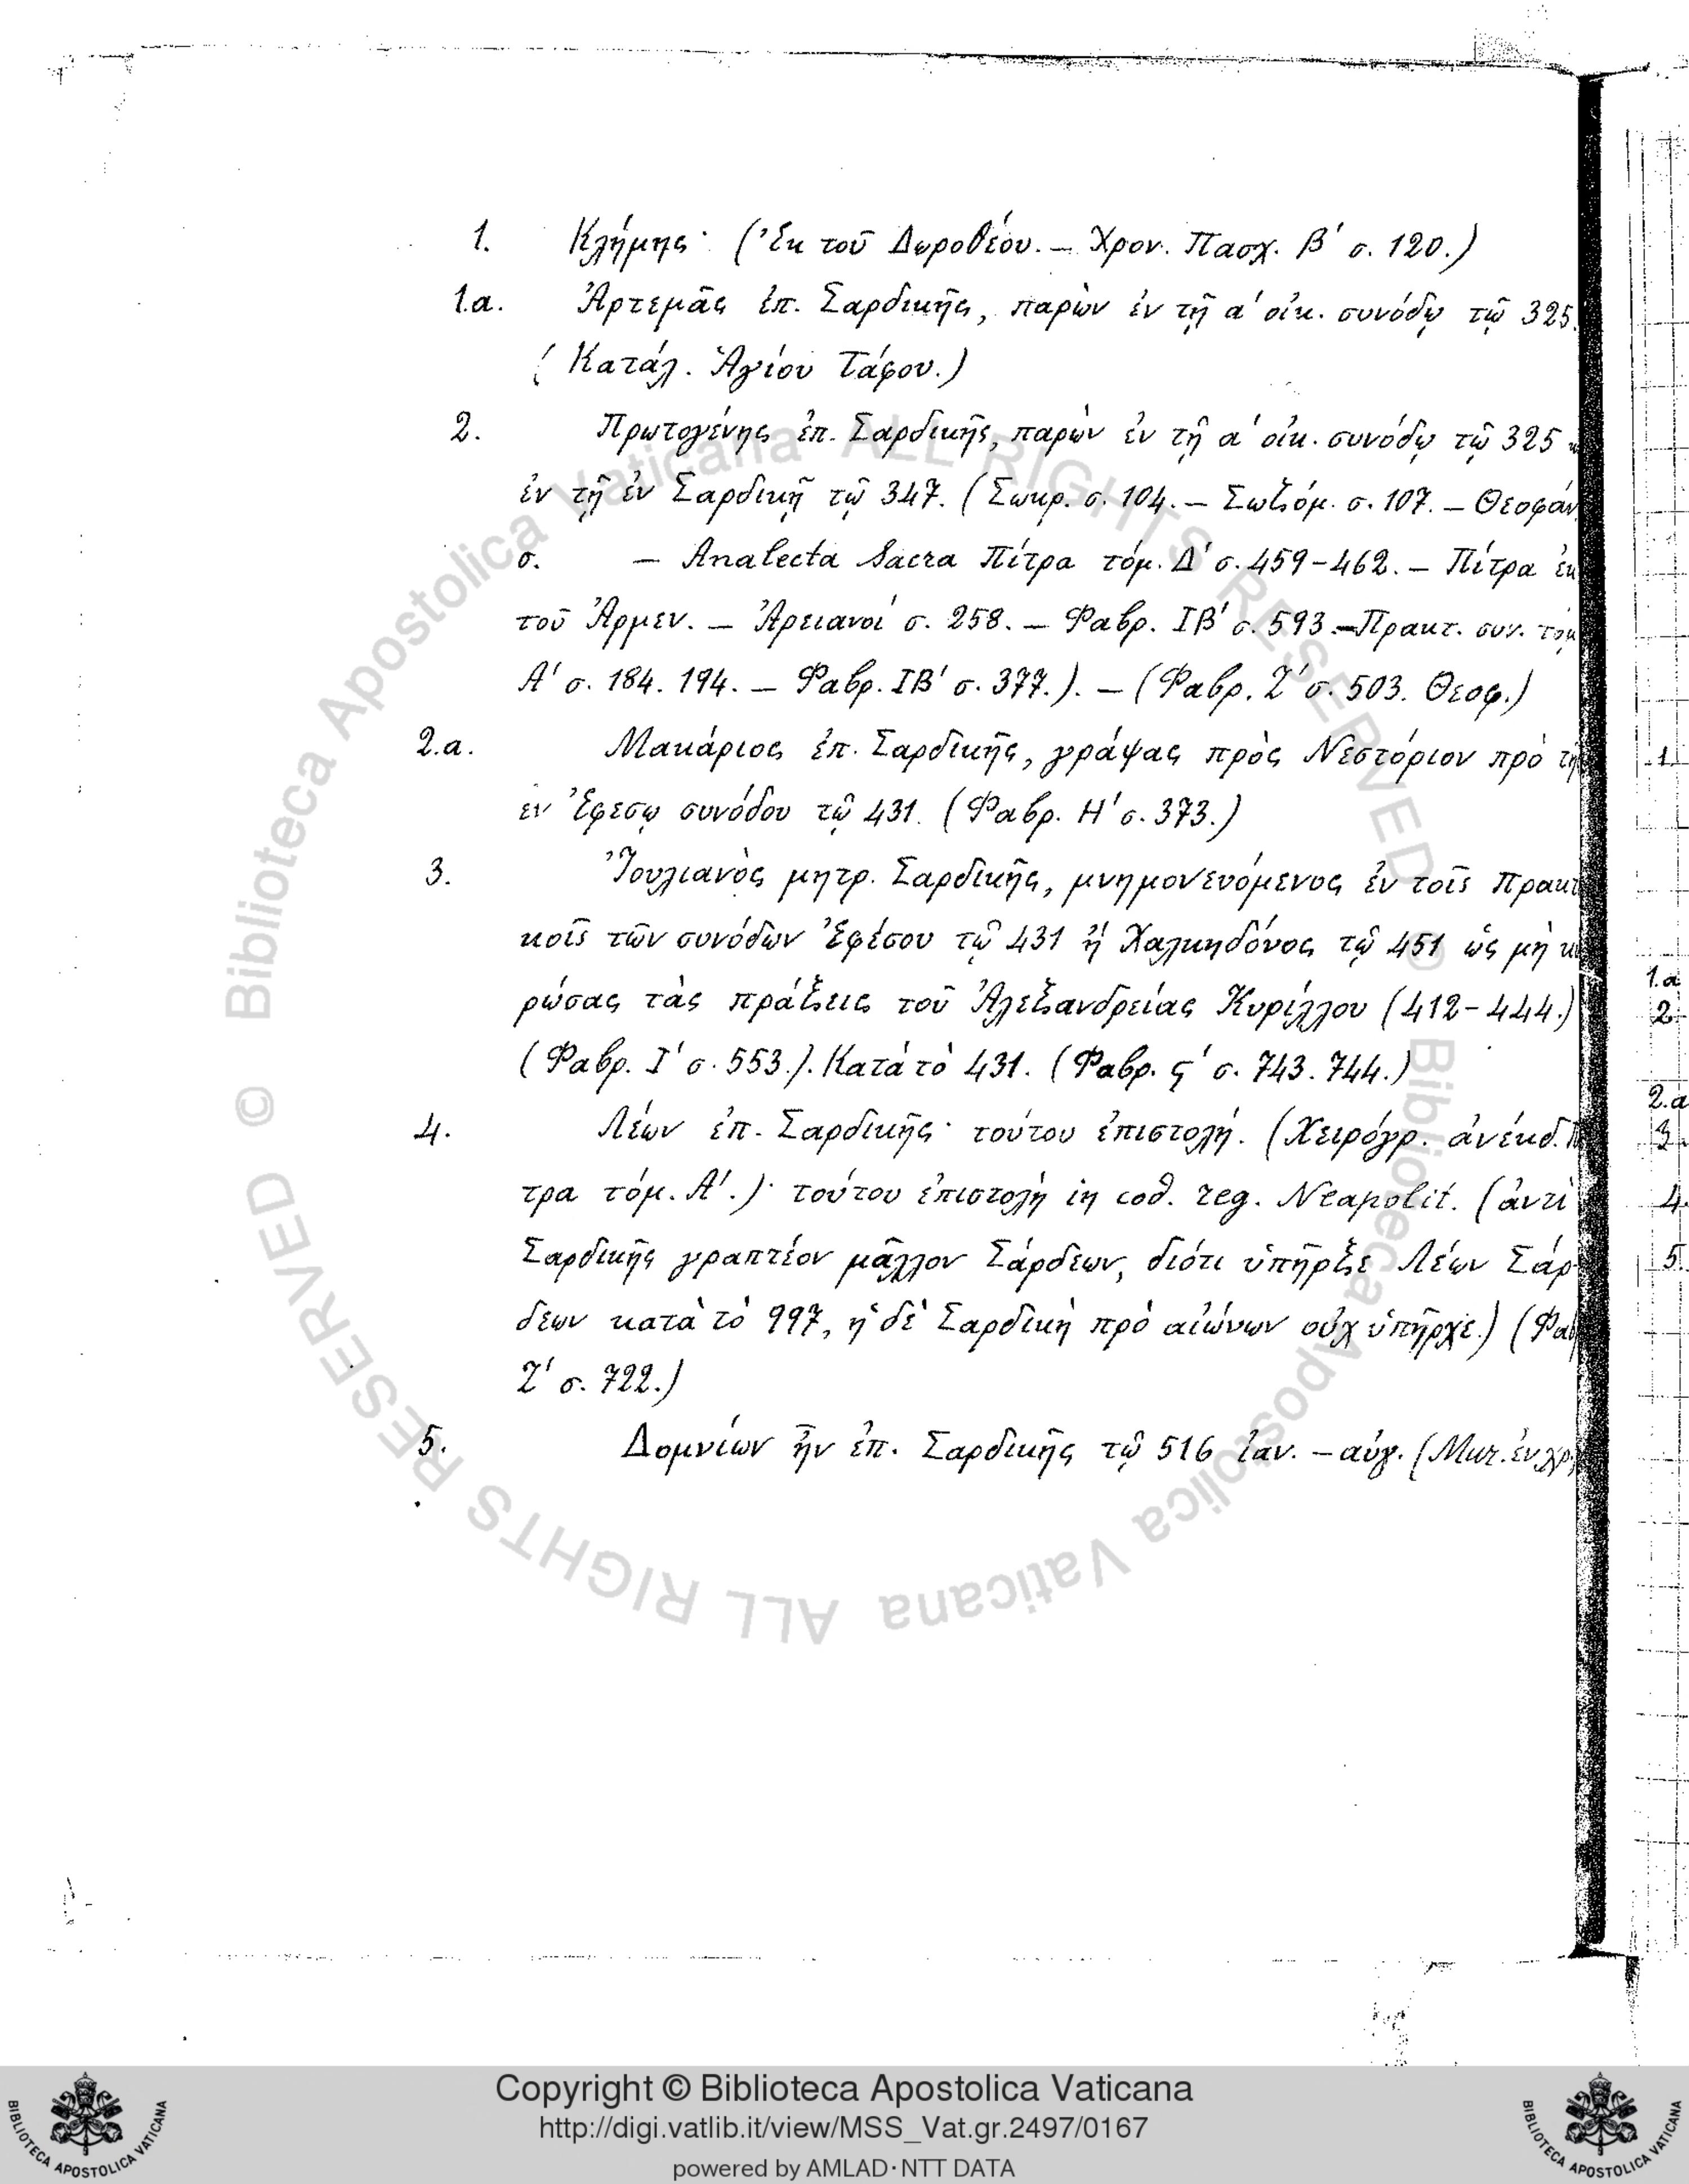 1. Κλήμης· (Ἐκ τοῦ Δωροθέου. — Χρον. Πασχ. β' σ. 120.)
1.α. Ἀρτεμᾶς ἐπ. Σαρδικῆς, παρὼν ἐν τῇ α' οἰκ. συνόδῳ τῷ 325.
(Κατάλ. Ἁγίου Τάφου.)
2. Πρωτογένης ἐπ. Σαρδικῆς, παρὼν ἐν τῇ α' οἰκ. συνόδῳ τῷ 325
ἐν τῇ ἐν Σαρδικῇ τῷ 347. (Σωκρ. σ. 104. — Σωζόμ. σ. 107. — Θεοφάν
σ. — Analecta Sacra Πίτρα τόμ. Δ' σ. 459-462. — Πίτρα ἐκ
τοῦ Ἀρμεν. — Ἀρειανοί σ. 258. — Φαβρ. ΙΒ' σ. 593. — Πρακτ. συν. τομ
Α' σ. 184. 194. — Φαβρ. ΙΒ' σ. 377.). — (Φαβρ. Ζ' σ. 503. Θεοφ.)
2.α. Μακάριος ἐπ. Σαρδικῆς, γράψας πρὸς Νεστόριον πρὸ τῆ
ἐν Ἐφέσῳ συνόδου τῷ 431. (Φαβρ. Η' σ. 373.)
3. Ἰουλιανὸς μητρ. Σαρδικῆς, μνημονευόμενος ἐν τοῖς πρακτ
κοῖς τῶν συνόδων Ἐφέσου τῷ 431 ἢ Χαλκηδόνος τῷ 451 ὡς μὴ κυ
ρώσας τὰς πράξεις τοῦ Ἀλεξανδρείας Κυρίλλου (412-444.)
(Φαβρ. Ι' σ. 553.). Κατὰ τὸ 431. (Φαβρ. ς' σ. 743. 744.)
4. Λέων ἐπ. Σαρδικῆς· τούτου ἐπιστολή. (Χειρόγρ. ἀνέκδ. Πί
τρα τόμ. Α'.)· τούτου ἐπιστολὴ in cod. reg. Neapolit. (ἀντὶ
Σαρδικῆς γραπτέον μᾶλλον Σάρδεων, διότι ὑπῆρξε Λέων Σάρ
δεων κατὰ τὸ 997, ἡ δὲ Σαρδικὴ πρὸ αἰώνων οὐχ ὑπῆρχε.) (Φαβ
Ζ' σ. 722.)
5. Δομνίων ἦν ἐπ. Σαρδικῆς τῷ 516 ἰαν. — αὐγ. (Μικ. ἐν χρ.
1
1.α
2
2.α
3.
4.
5.
© Biblioteca Apostolica Vaticana ALL RIGHTS RESERVED © Biblioteca Apostolica Vaticana ALL RIGHTS RESERVED
BIBLIOTECA APOSTOLICA VATICANA
Copyright © Biblioteca Apostolica Vaticana
http://digi.vatlib.it/view/MSS_Vat.gr.2497/0167
powered by AMLAD·NTT DATA
BIBLIOTECA APOSTOLICA VATICANA